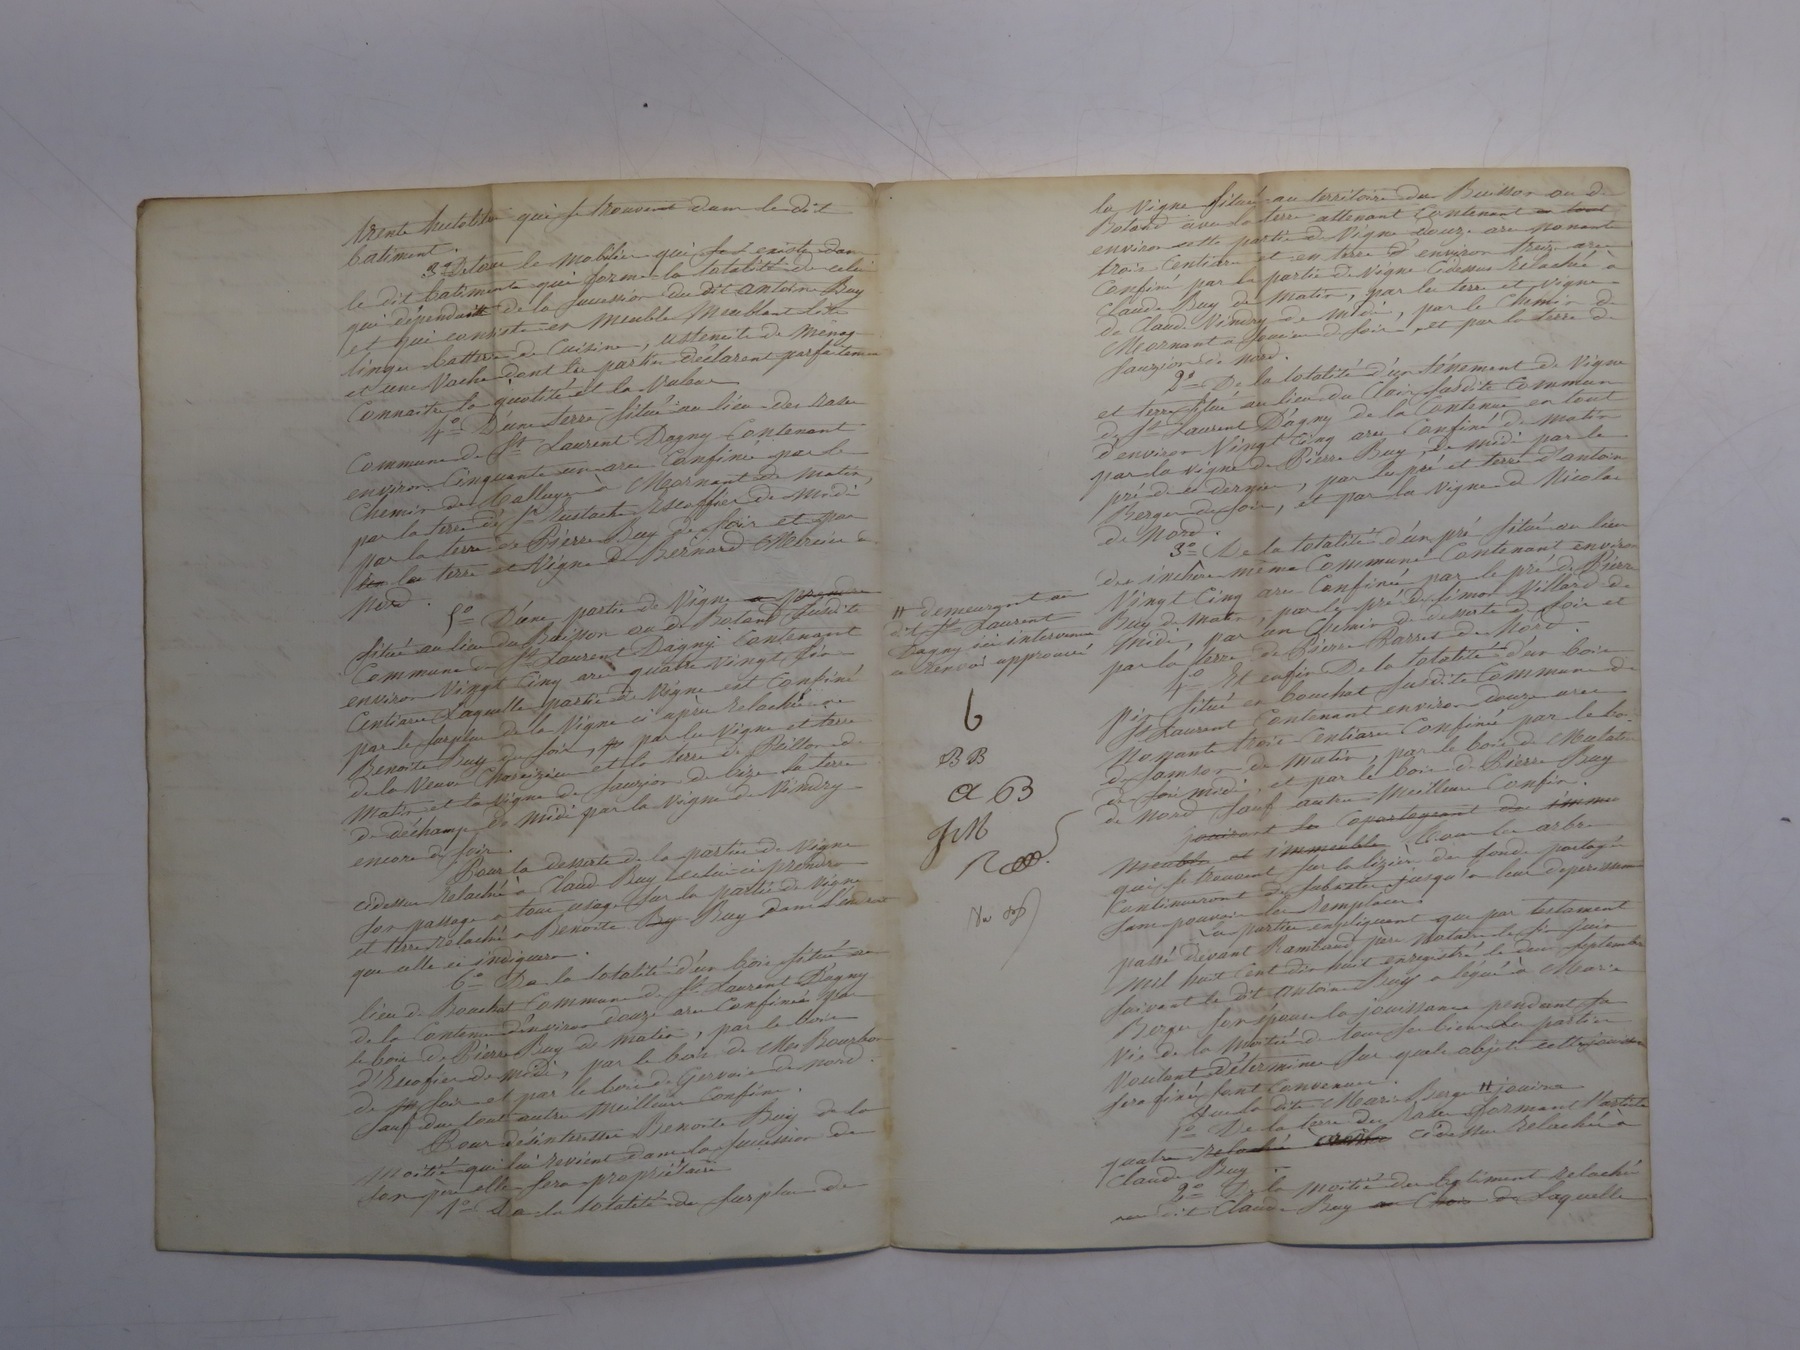 trente hectolitre qui se trouvent dans le dit
batiment.
3° De tous le mobilier qui existe dans
le dit batiments qui forme la totalité de celui
qui dépendait de la succession du dit antoine Buy
et qui consiste en Meuble Meublant lits
linges batterie de Cuisine, ustencile de Menage
et une Vache dont les parties déclarent parfaitement
Connaitre la quotité et la Valeur
4° D'une terre située au lieu des rases
Commune de St Laurent Dagny Contenant
environ Cinquante un ares Confinée par le
Chemin de à Mornant de Matin,
par la terre de Sr Eustache Escoffier de Midi
par la terre de Pierre Buy de Soir et par
la terre et Vigne de Bernard Mercier de
Nord.
5° D'une partie de Vigne
située au lieu du Buisson ou de Boland susdite
Commune de St Laurent Dagny Contenant
environ Vingt Cinq ares quatre Vingt Six
Centiares Laquelle partie de Vigne est Confiné
par le surplus de la Vigne ci après relachée a
Benoite Buy de Soir, par les Vigne et terre
de la Veuve et la terre de de
Matin et la Vigne de Sauzion de bize la terre
de déchamp de Midi par la Vigne de Vindry
encore de soir.
Pour la desserte de la partie de Vigne
cidessus relachée à Claude Buy celui ci prendra
son passage a tous usage sur la partie de Vigne
et terre relaché a Benoite Buy dans l'endroit
que celle ci indiquera.
6° De la totalité d'un bois situé au
lieu de Bouchat Commune de St Laurent Dagny
de la Contenue d'environ douze ares Confinée par
le bois de Pierre Buy de Matin, par le bois
d'Escofier de Midi, par le bois de Mes Bourbon
de Soir et par le bois de Gervais de nord.
Sauf du tout autre Meilleur Confin.
Pour désintéresser Benoite Buy de la
Moitié qui lui revient dans la succession de
son père elle sera propriétaire
1° De la totalité du surplus de
" demeurant au
dit St Laurent
Dagny ici intervenue
renvoi approuvé
b
BB
a B
JM
la Vigne située au territoire du Buisson ou de
Boland avec la terre attenant Contenant
environ cette partie de Vigne douze ares nonante
trois Centiare et en terre d'environ treize ares
Confiné par la partie de Vigne Cidessus relachée à
Claude Buy de Matin, par les terre et Vigne
de Claude Vindry de Midi, par le Chemin de
Mornant a de Soir et par la terre de
Sauzion de nord.
2° De la totalité d'un tènement de Vigne
et terre situé au lieu du Cloir susdite Commune
de St Laurent Dagny de la Contenue en tout
d'environ Vingt Cinq ares Confiné de Matin
par la Vigne de Pierre Buy, de Midi par le
pré de ce dernier, par le pré et terre d'antoine
Berger de Soir, et par la Vigne de Nicolas
de Nord.
3° De la totalité d'un pré situé au lieu
des même Commune Contenant environ
Vingt Cinq ares Confiné par le pré de Pierre
Buy de Matin, par le pré de Simon Villard de
Midi, par un Chemin de desserte de Soir et
par la terre de Pierre Barret de Nord.
4° Et enfin De la totalité d'un bois
pin situé en bouchat susdite Commune de
St Laurent Contenant environ douze ares
Nonante trois Centiare Confiné par le bois
de Samson de Matin, par le bois de Mulatin
de soir Midi, et par le bois de Pierre Buy
de Nord Sauf autre Meilleur Confin.
jouiront les Copartageant des immeu
Meubles et immeubles Tous les arbres
qui se trouvent sur la lizière des fonds partagés
Continueront de subsister jusqu'a leur déperissement
sans pouvoir les remplacer.
Les parties expliquent que par testament
passé devant Rambaud père Notaire le six juin
Mil huit cent dix huit enregistré le deux septembre
suivant le dit Antoine Buy a légué à Marie
Berger son épouse la jouissance pendant sa
Vie de la Moitié de tous ses biens Les parties
Voulant déterminer sur quels objets cette jouissance
sera fixée sont Convenues.
Que la dite Marie Berger " jouira
1° De la terre des Rases formant l'article
quatre relaché cidessus relachée à
Claude Buy.
2° De la Moitié du batiment relaché
au dit Claude Buy au Choix de Laquelle